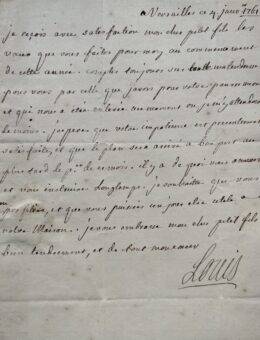 a Versailles ce 4 janv.er 1761
je reçois avec satisfaction mon cher petit fils les
vœux que vous faites pour moy, au commencement
de cette année. comptés toujours sur toutte
pour vous par celle que javois pour votre pauvre mere
et qui nous a été enlevée au moment ou je m'y attendois
le moins. jespere que votre impatience est presentement
satisfaite, et que le plan sera arrivé a bon port au
plus tard le p.er de ce mois. il y a de quoi vous amuser
et vous instruire longtemps. je souhaitte que vous
, et que puissiés un jour
votre Maison. je vous embrasse mon cher petit fils
bien tendrement, et de tout mon cœur
Louis